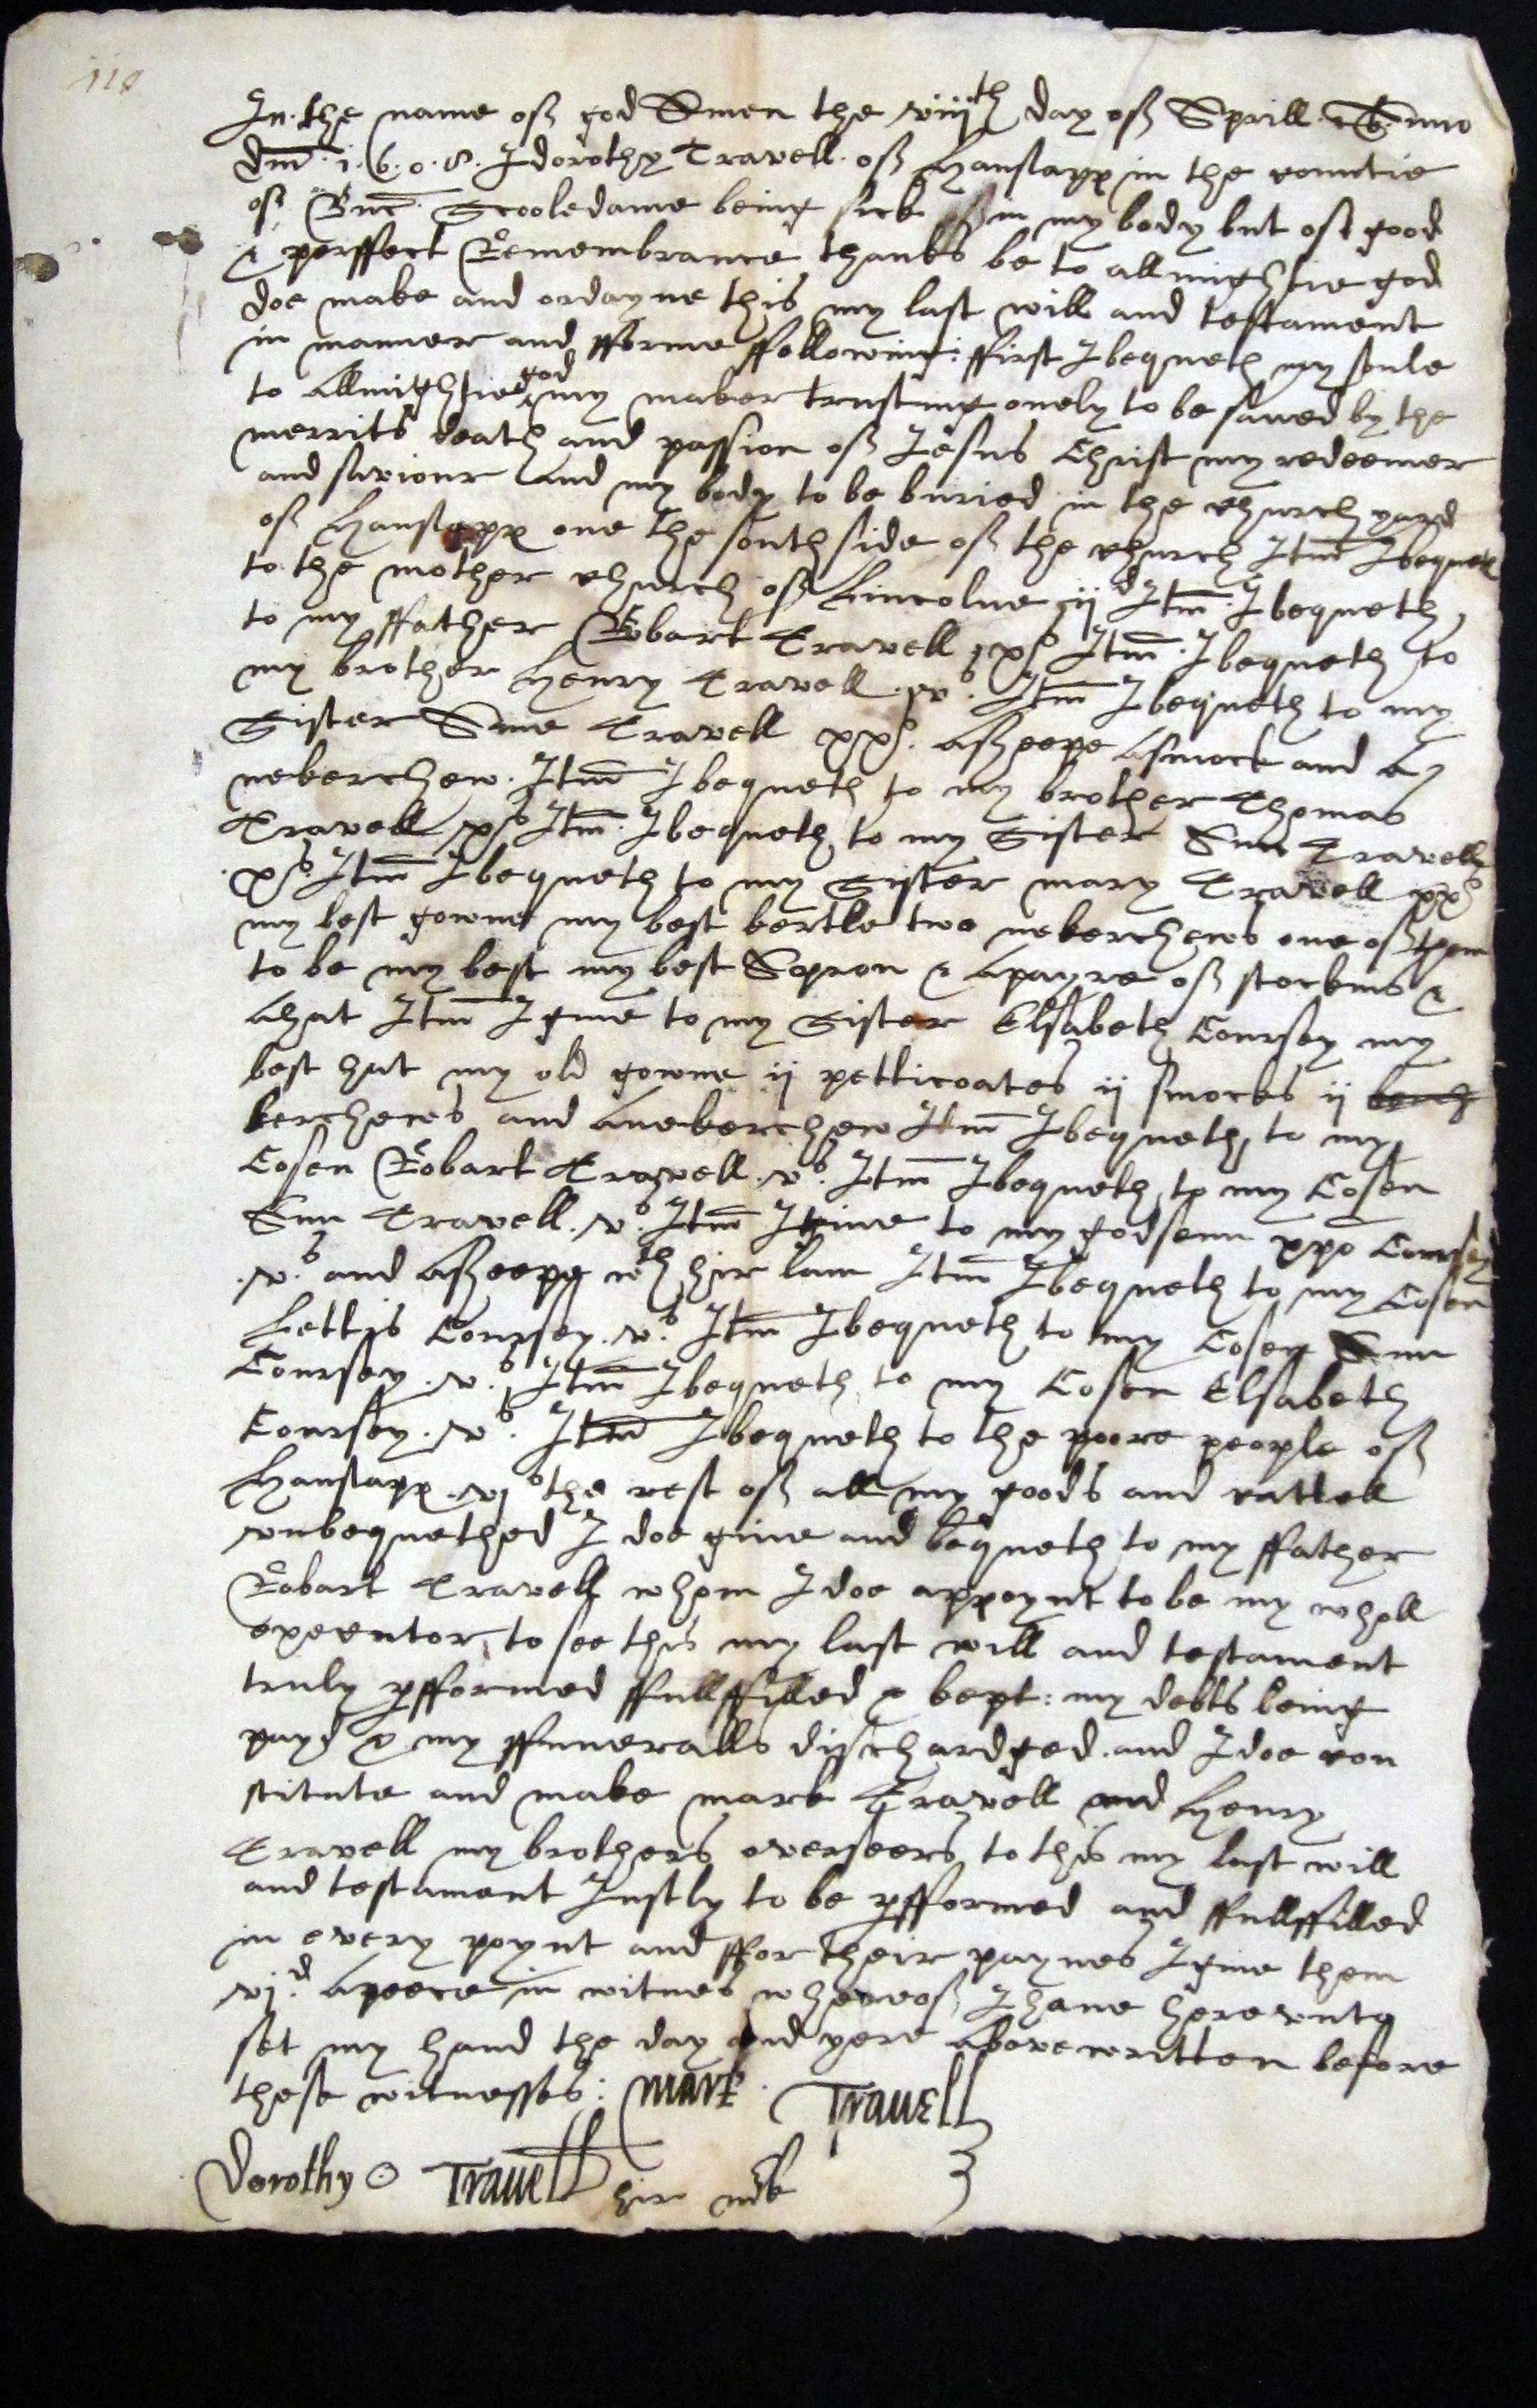 110
In the name off god Amen the viijth day off Aprill Anno
dm̄ i.6.0.8. I dorothy Travell off Hanslapp in the countie
off Buc̄ Scooledame being sick in my body but off good
& perffect Remembrance thanks be to allmightie god
doe make and ordayne this my last will and testament
in manner and fforme ffollowing: ffirst I bequeth my soule
to Allmightie god my maker trusting onely to be saued by the
merrits death and passion off Jesus Christ my redeemer
and saviour And my body to be buried in the church yard
off Hanslapp one the south side off the church Itm̄ I bequeth
to the mother church off Lincolne ij d Itm̄ I bequeth
to my ffather Robart Travell Itm̄ I bequeth to
my brother Henry Travell vs Itm̄ I bequeth to my
Sister Ame Travell xxs. Asheepe Asmock and A
nekerchew. Itm̄ I bequeth to my brother Thomas
Travell xs Itm̄ I bequeth to my Sister Ann Travell
xs Itm̄ I bequeth to my Sister mary Travell xxs
my best gowne my best kertle two nekerchews one off them
to be my best my best Apron & Apayre off stockins &
Ahat Itm̄ I giue to my Sister Elsabeth Coursey my
best hat my old gowne ij petticoates ij smocks ij kerch
kerchews and Anekerchew Itm̄ I bequeth to my
Cosen Robart Travell vs. Itm̄ I bequeth to my Cosen
Ann Travell. vs. Itm̄ I giue to my godsonn xpo Coursey
.vs. and Asheepe wth hir lam Itm̄ I bequeth to my Cosen
Lettis Coursey. vs. Itm̄ I bequeth to my Cosen Ann
Coursey. vs. Itm̄ I bequeth to my Cosen Elsabeth
Coursey. vs. Itm̄ I bequeth to the poore people off
Hanslapp. vjs the rest off all my goods and cattell
vnbequethed I doe giue and bequeth to my ffather
Robart Travell whom I doe appoynt to be my wholl
executor to see this my last will and testament
truly pfformed ffullffilled & kept: my debts being
payd & my ffuneralls dischardged. and I doe con
stitute and make mark Travell and Henry
Travell my brothers overseers to this my last will
and testament Justly to be pfformed and ffullffilled
in every poynt and ffor their paynes I giue them
vjd Apeece in witnes wheroff I haue herevnto
set my hand the day and yere Above written before
these witnesses: Mark Trauell
Dorothy O Trauell hir mk